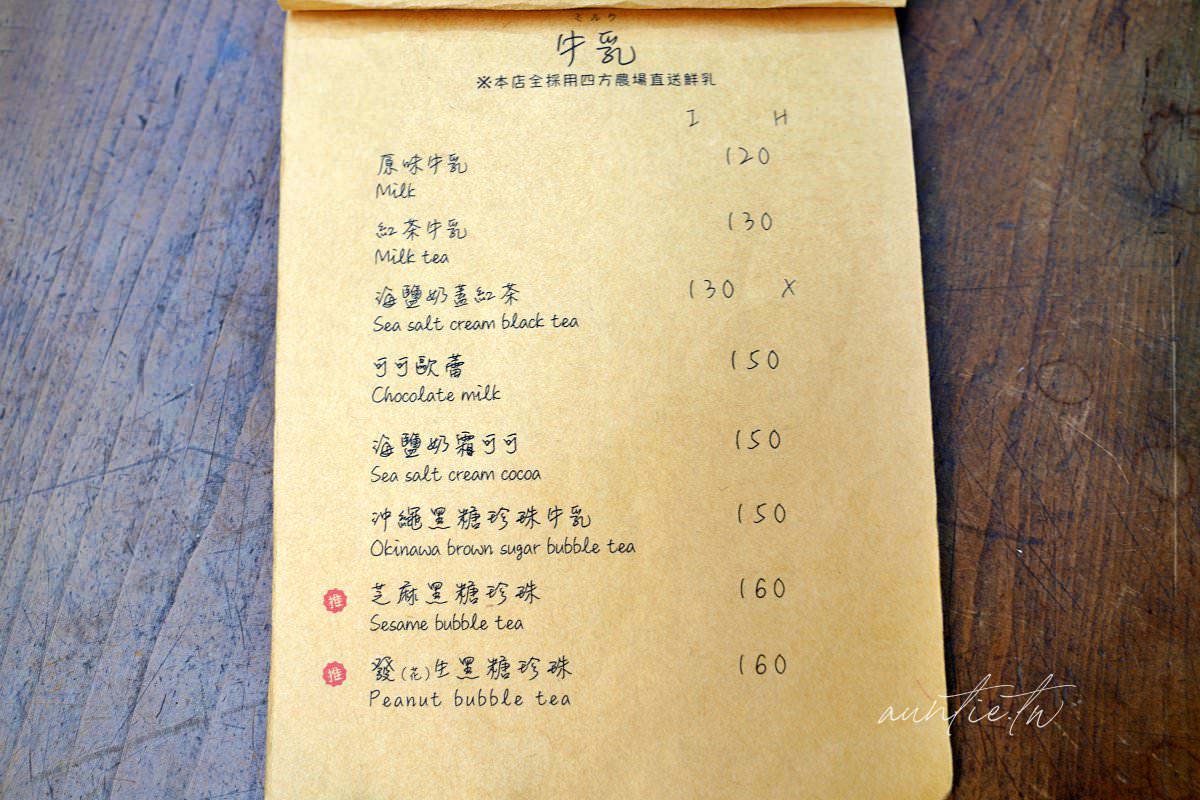 ミルク
牛乳
※本店全採用四方農場直送鮮乳
I H
原味牛乳 120
Milk
紅茶牛乳 130
Milk tea
海鹽奶蓋紅茶 130 X
Sea salt cream black tea
可可歐蕾 150
Chocolate milk
海鹽奶霜可可 150
Sea salt cream cocoa
沖繩黑糖珍珠牛乳 150
Okinawa brown sugar bubble tea
推 芝麻黑糖珍珠 160
Sesame bubble tea
推 發(花)生黑糖珍珠 160
Peanut bubble tea
auntie.tw